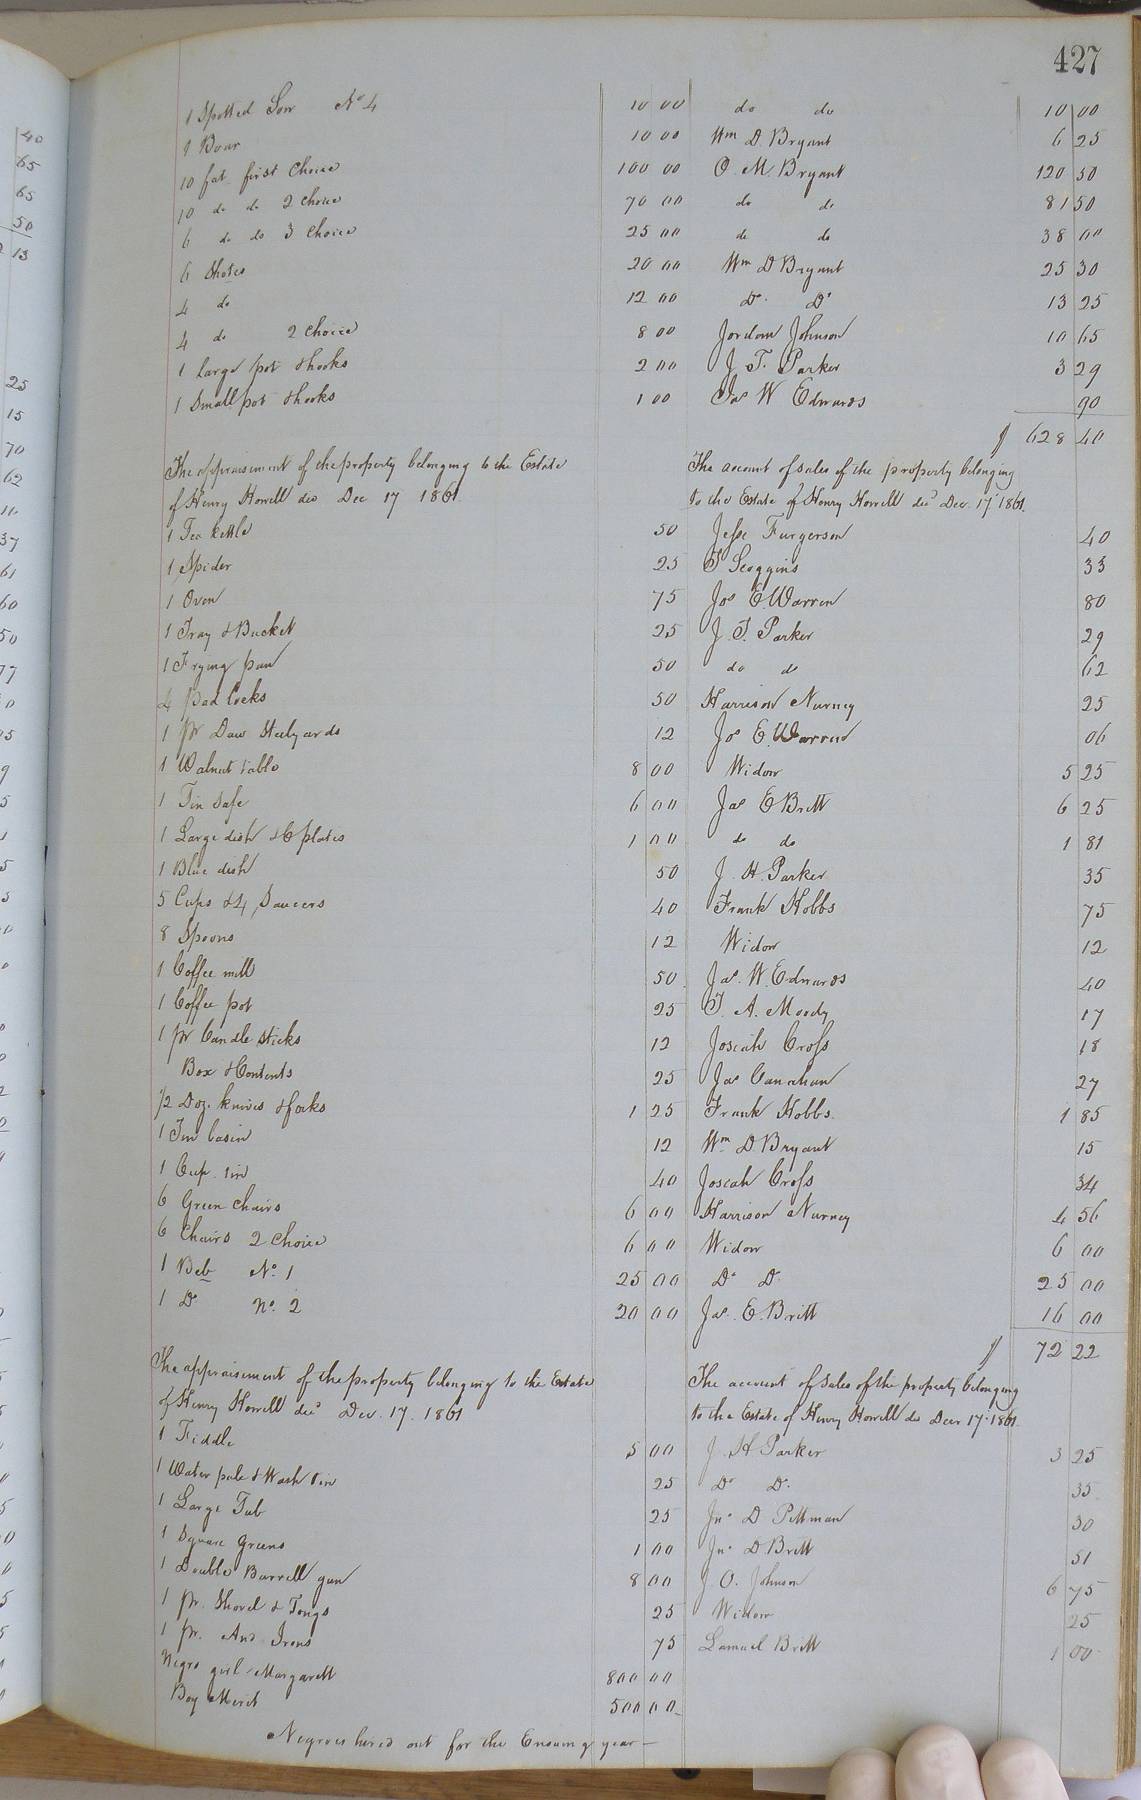 427
1 Spotted Sow No 4 10 00 do do 10 00
1 Boar 10 00 Wm D. Bryant 6 25
10 fat first Choice 100 00 O. M. Bryant 120 50
10 do do 2 choice 70 00 do do 81 50
6 do do 3 Choice 25 00 do do 38 00
6 Shotes 20 00 Wm D Bryant 25 30
4 do 12 00 Do Do 13 25
4 do 2 Choice 8 00 Jordan Johnson 10 65
1 Large pot & hooks 2 00 J. T. Parker 3 29
1 Small pot & hooks 1 00 Jas W Edwards 90
$ 628 40
The appraisement of the property belonging to the Estate
of Henry Howell dec Dec 17 1861
The account of sales of the property belonging
to the Estate of Henry Howell decd Dec. 17 1861.
1 Tea kettle 50 Jesse Furgerson 40
1 Spider 25 T Scoggins 33
1 Oven 75 Jos E. Warren 80
1 Tray & Buckett 25 J. T. Parker 29
1 Frying pan 50 do do 62
4 Pad locks 50 Harrison Nurney 25
1 Pr Draw Steelyards 12 Jos E. Warren 06
1 Walnut table 8 00 Widow 5 25
1 Tin Safe 6 00 Jas E Britt 6 25
1 Large dish & 6 plates 1 00 do do 1 81
1 Blue dish 50 J. H. Parker 35
5 Cups & 4 Saucers 40 Frank Hobbs 75
8 Spoons 12 Widow 12
1 Coffee mill 50 Jas. W. Edwards 40
1 Coffee pot 25 T. A. Moody 17
1 Pr Candle Sticks 12 Josiah Cross 18
Box & Contents 25 Jas Canahan 27
1/2 Doz. knives & forks 1 25 Frank Hobbs. 1 85
1 Tin basin 12 Wm D. Bryant 15
1 Cup tin 40 Josiah Cross 34
6 Green Chairs 6 00 Harrison Nurney 4 56
6 Chairs 2 Choice 6 00 Widow 6 00
1 Beb No. 1 25 00 Do D. 25 00
1 Do No. 2 20 00 Jas. E. Britt 16 00
$ 72 22
The appraisement of the property belonging to the Estate
of Henry Howell decd Dec. 17. 1861
The account of sales of the property belonging
to the Estate of Henry Howell dec Decr 17. 1861
1 Fiddle 5 00 J. H Parker 3 25
1 Water pale & Wash tin 25 Do D. 35
1 Large Tub 25 Jno D Pittman 30
1 Square Greens 1 00 Jno D Britt 51
1 Double Barrell gun 8 00 J O. Johnson 6 75
1 Pr. Shovel & Tongs 25 Widow 25
1 Pr. And Irons 75 Lamuel Britt 1 00
Negro girl Margarett 800 00
Boy Merit 500 00
Negroes hired out for the Ensuing year